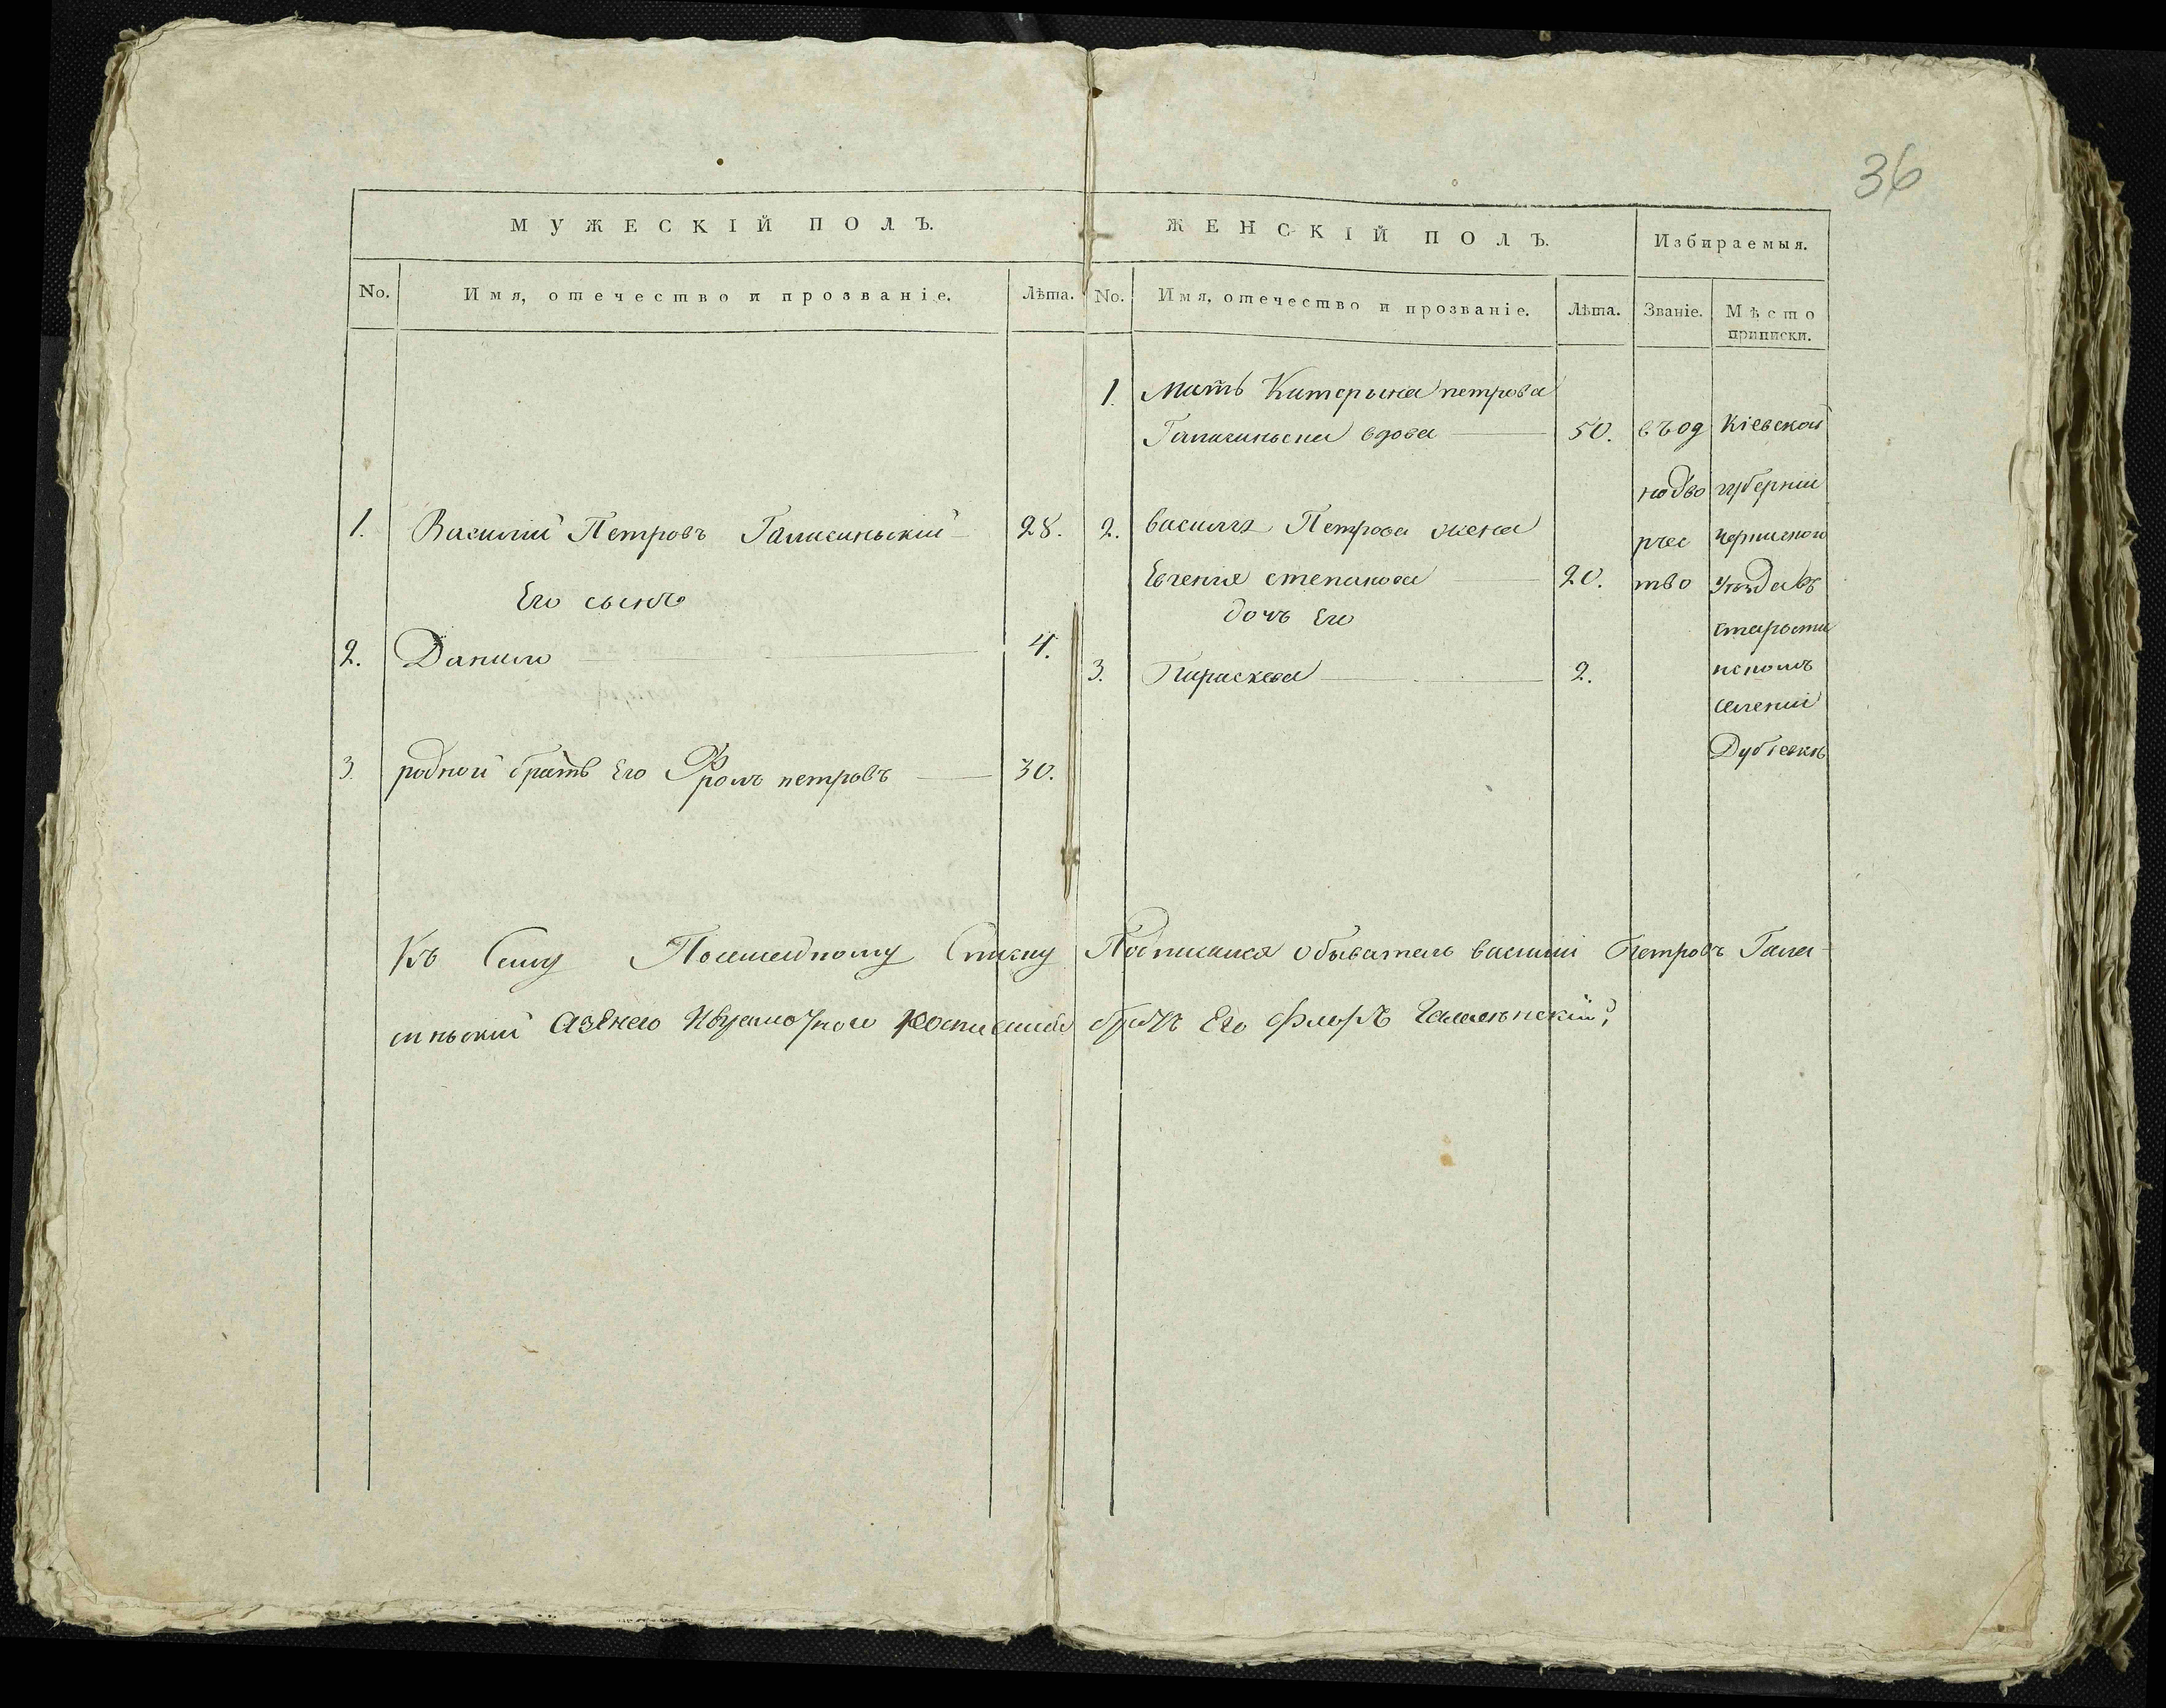 36
МУЖЕСКІЙ ПОЛЪ.
ЖЕНСКІЙ ПОЛЪ.
Избираемыя.
No. Имя, отечество и прозваніе. Лѣта.
No. Имя, отечество и прозваніе. Лѣта. Званіе. Мѣсто
приписки.
1. Мать Катерына петрова
вдова 50.
1. Василий Петровъ Галасиньскій 28.
Его сынъ
2. Данило 4.
3. родной братъ Его Фролъ петровъ 30.
2. василия Петрова жена
Евгения степанова 20.
дочь Его
3. Параскева 2.
въ од
нодво
рчес
тво
Кіевской
губерніи
уѣзда въ
селеніи
Дубіевкѣ
Къ Сему Посемейному Списку Подписался обыватель василий Петровъ Гала-
синьский братъ Его Флоръ